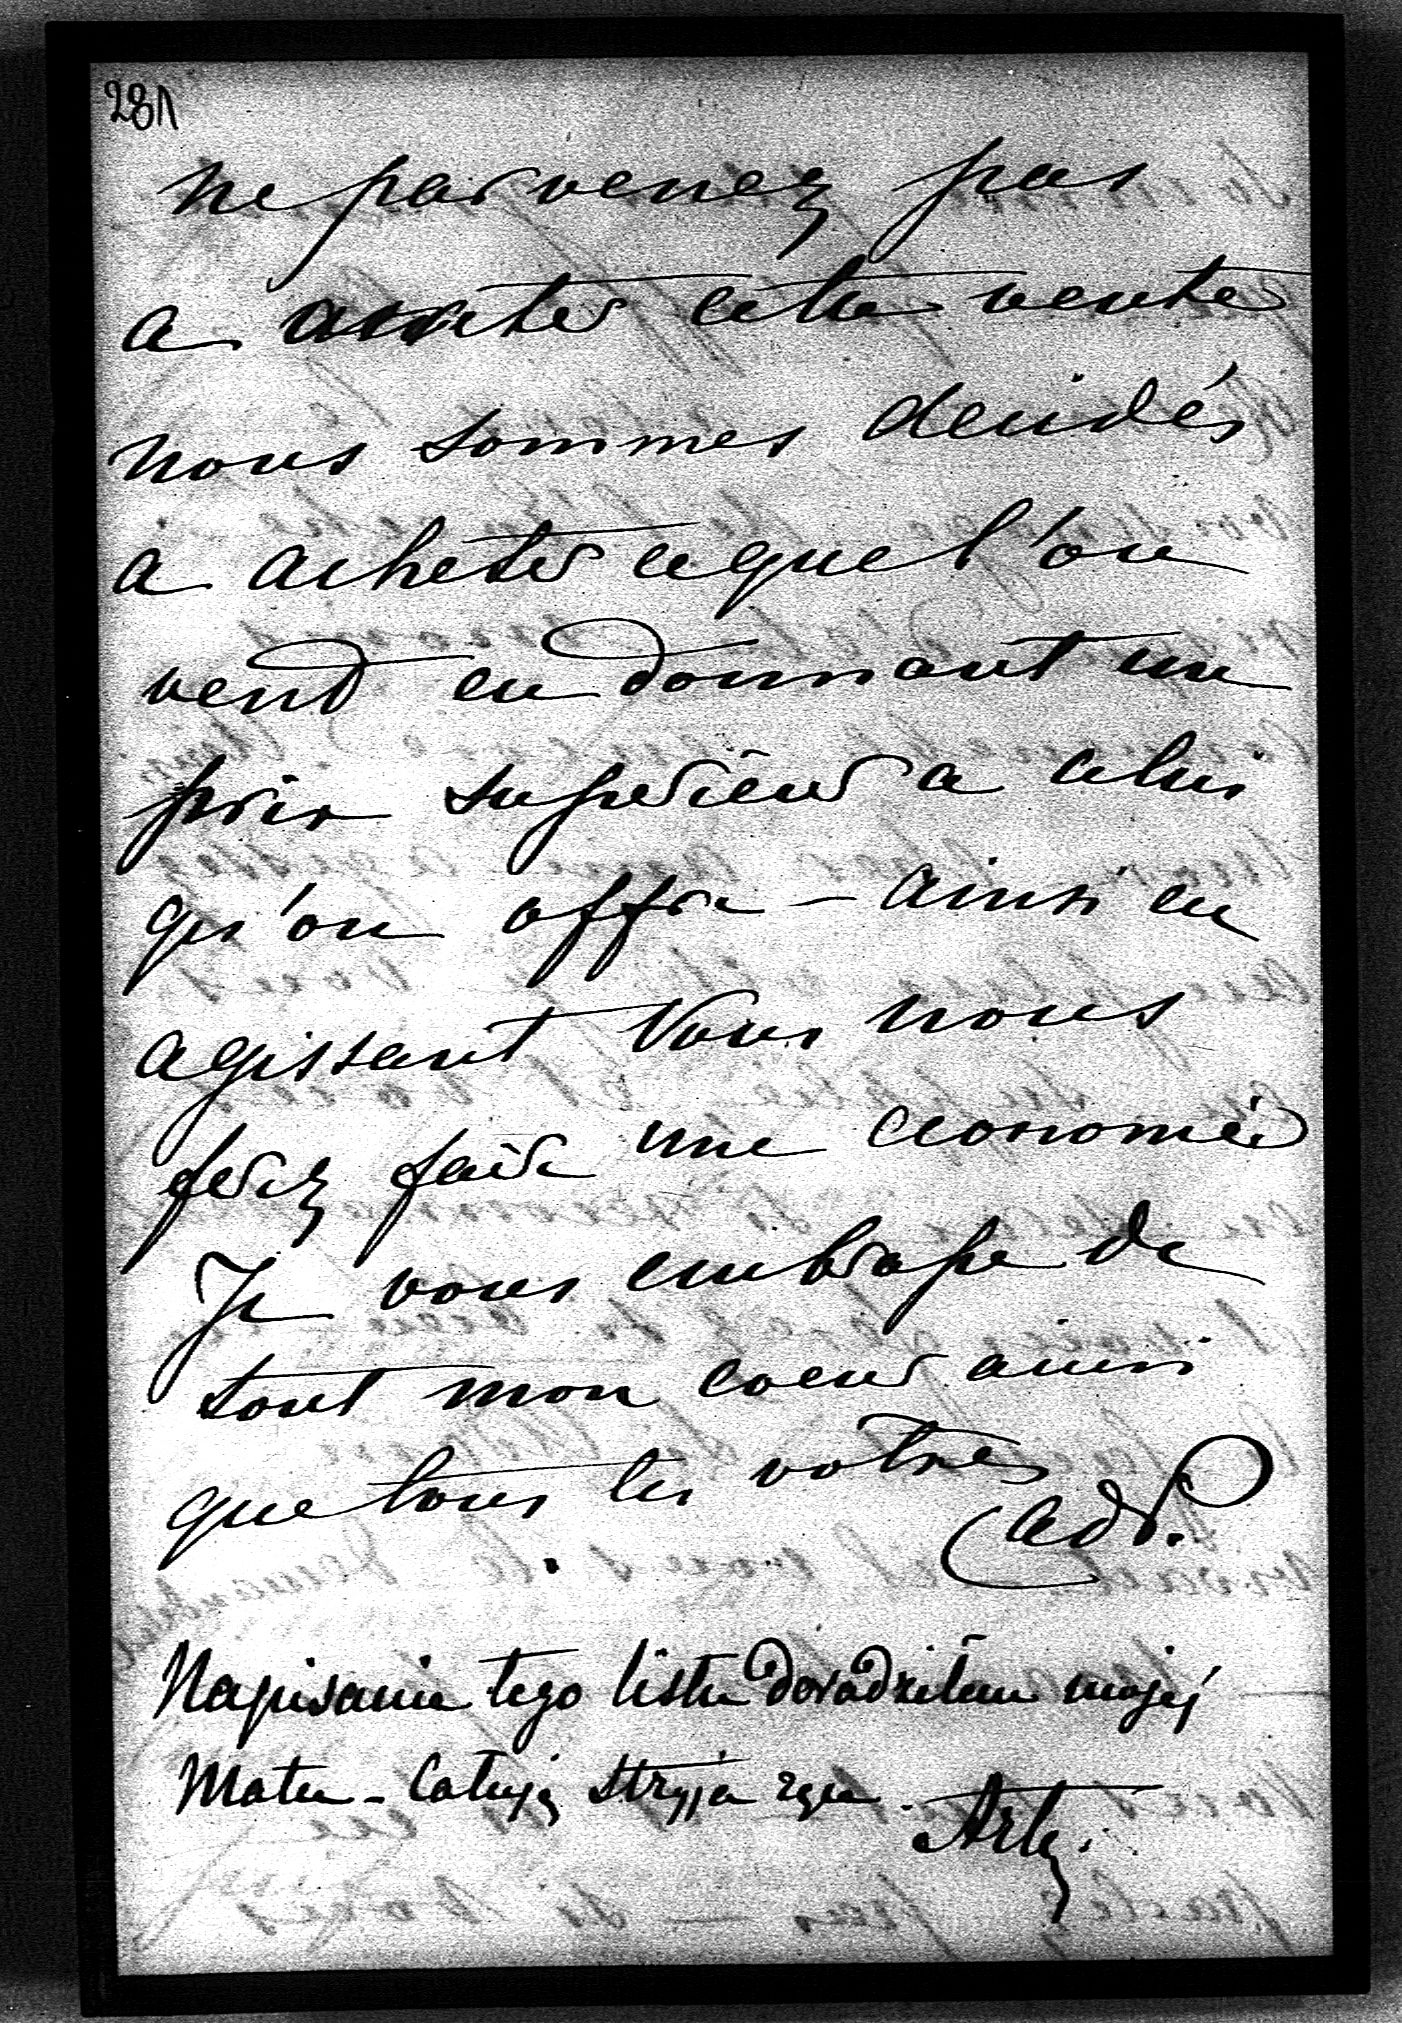 281
ne parvenez pas
a arreter cette vente
nous sommes decidés
a acheter ce que l'on
vend en donnant un
prix superieur a celui
qu'on offre – ainsi en
agissant Vous nous
ferez faire une economie
Je vous embrasse de
tout mon coeur ainsi
que tous les votres
Napisanie tego listu doradziłem mojéj
Matce – Całuję Stryja ręce.